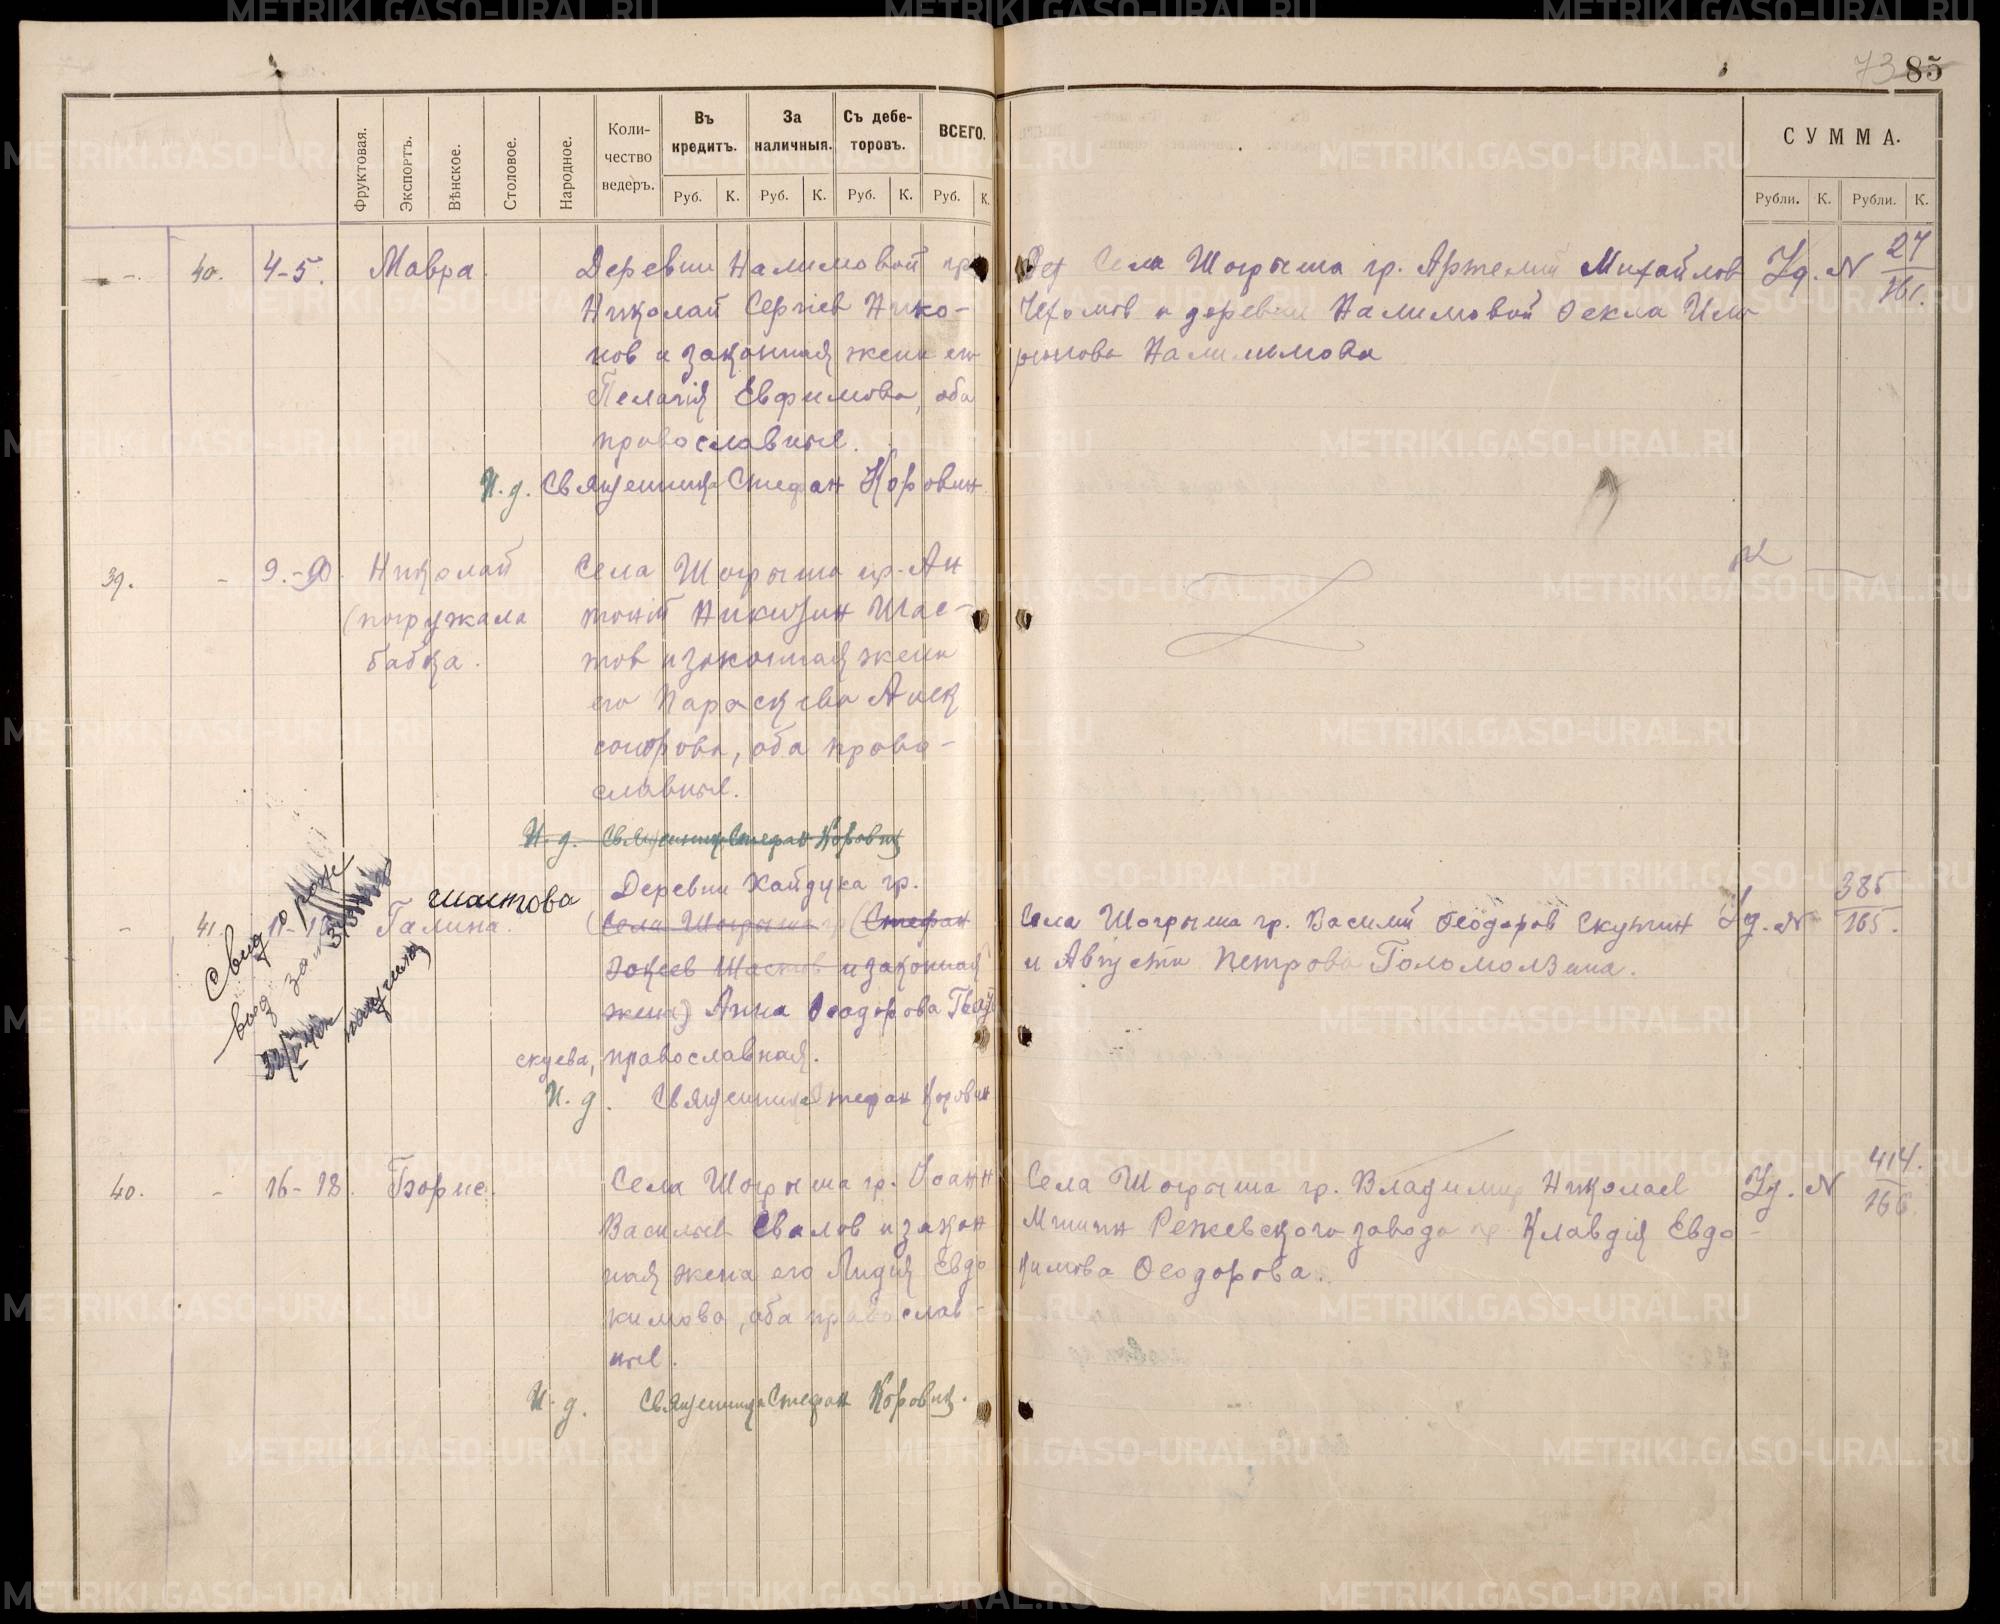 73 85
Фруктовая.
Экспортъ.
Вѣнское.
Столовое.
Народное.
Коли-
чество
ведеръ.
Въ
кредитъ.
За
наличныя.
Съ дебе-
торовъ.
ВСЕГО.
Руб. К. Руб. К. Руб. К. Руб. К.
СУММА.
Рубли. К. Рубли. К.
40. 4-5. Мавра. Деревни Налимовой гр.
Николай Сергіев Нико-
нов и законная жена его
Пелагія Евфимова, оба
православныя.
И. д. Священника Стефан Коровин
Села Шогрыша гр. Артемий Михайлов
и деревни Налимовой Фекла
Налимова
Уд. N 27
161.
39. - Николай
(погружала
бабка.
Села Шогрыша гр. Ан
тоній Никитин Шас-
тов и законная жена
его Параскева Алек
сандрова, оба право-
славныя.
И. д. Священника Стефан Коровин
- 41. Галина. Шастова
Свид о рож
выд за
Деревни Хайдука гр.
(Села Шогрыша гр (Стефан
Шастов и законная
жена) Анна Феодорова
православная.
И. д. Священника Стефан Коровин
Села Шогрыша гр. Василий Феодоров Скутин
и Августа Петрова Голомолзина.
Уд. N 385
165.
40. - 16-18. Борис. Села Шогрыша гр. Иоанн
Васильев Свалов и закон
ная жена его Лидія Евдо
кимова, оба православ-
ныя.
И. д. Священника Стефан Коровин.
Села Шогрыша гр. Владимир Николаев
Режевского завода гр. Клавдія Евдо-
кимова Феодорова.
Уд. N 414.
166.
METRIKI.GASO-URAL.RU